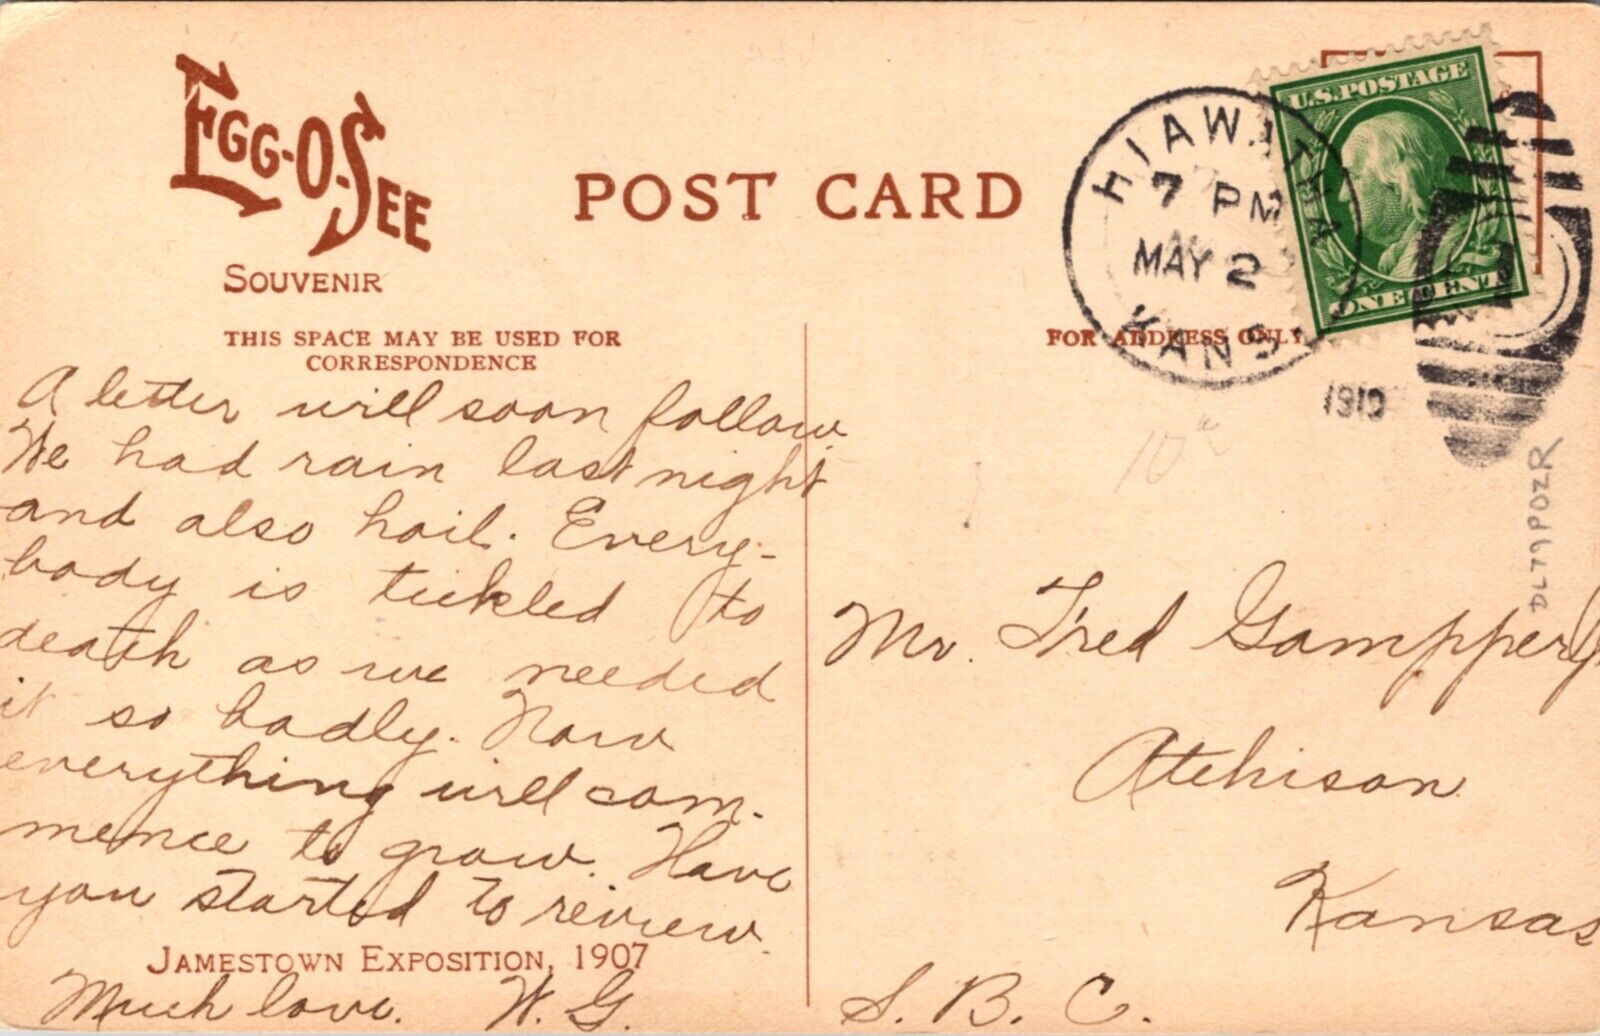 EGG-O-SEE
SOUVENIR
POST CARD
THIS SPACE MAY BE USED FOR
CORRESPONDENCE
FOR ADDRESS ONLY
HIAWATHA
7 PM
MAY 2
KANS
1910
U.S. POSTAGE
ONE CENT
A letter will soon follow.
We had rain last night
and also hail. Every-
body is tickled to
death as we needed
it so badly. Now
everything will com-
mence to grow. Have
you started to review.
JAMESTOWN EXPOSITION, 1907
Much love. W. G.
10¢
DL79POZR
Mr. Fred Gampper Jr
Atchison
Kansas
S. B. C.